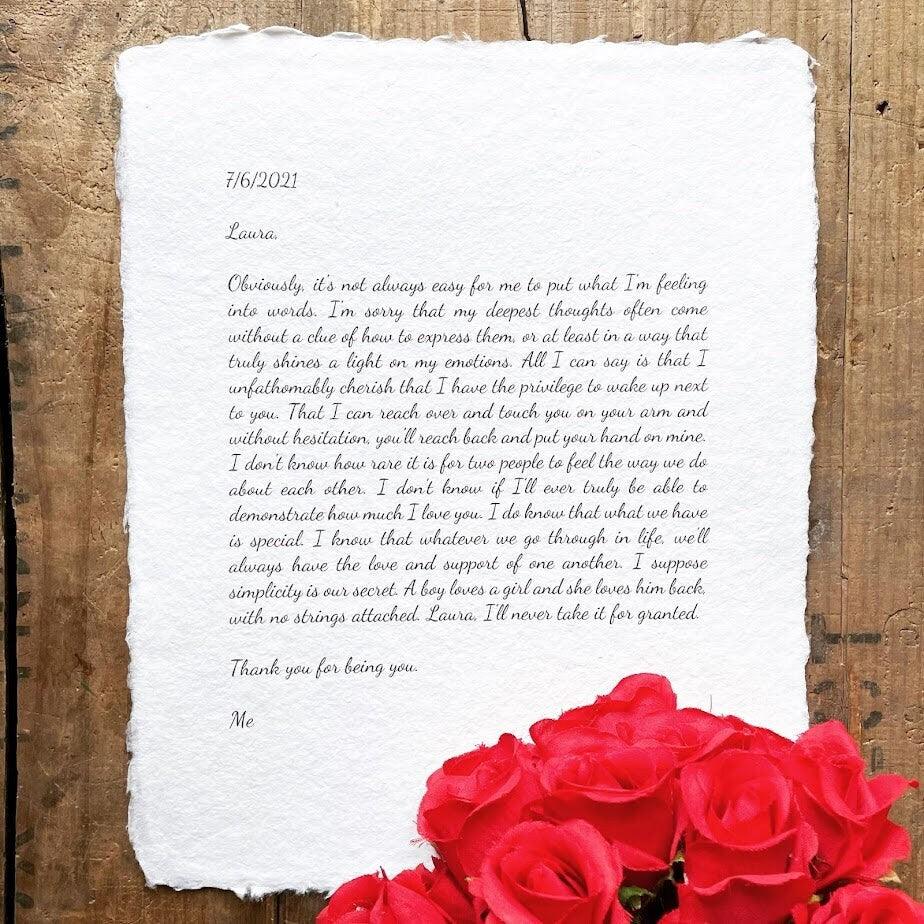 7/6/2021
Laura,
Obviously, it's not always easy for me to put what I'm feeling
into words. I'm sorry that my deepest thoughts often come
without a clue of how to express them, or at least in a way that
truly shines a light on my emotions. All I can say is that I
unfathomably cherish that I have the privilege to wake up next
to you. That I can reach over and touch you on your arm and
without hesitation, you'll reach back and put your hand on mine.
I don't know how rare it is for two people to feel the way we do
about each other. I don't know if I'll ever truly be able to
demonstrate how much I love you. I do know that what we have
is special. I know that whatever we go through in life, we'll
always have the love and support of one another. I suppose
simplicity is our secret. A boy loves a girl and she loves him back,
with no strings attached. Laura, I'll never take it for granted.
Thank you for being you.
Me